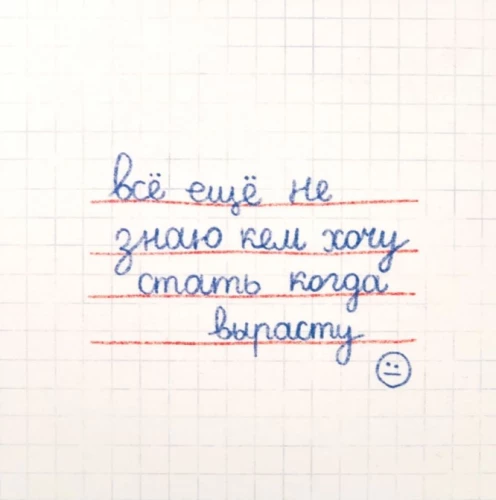 всё ещё не
знаю кем хочу
стать когда
вырасту